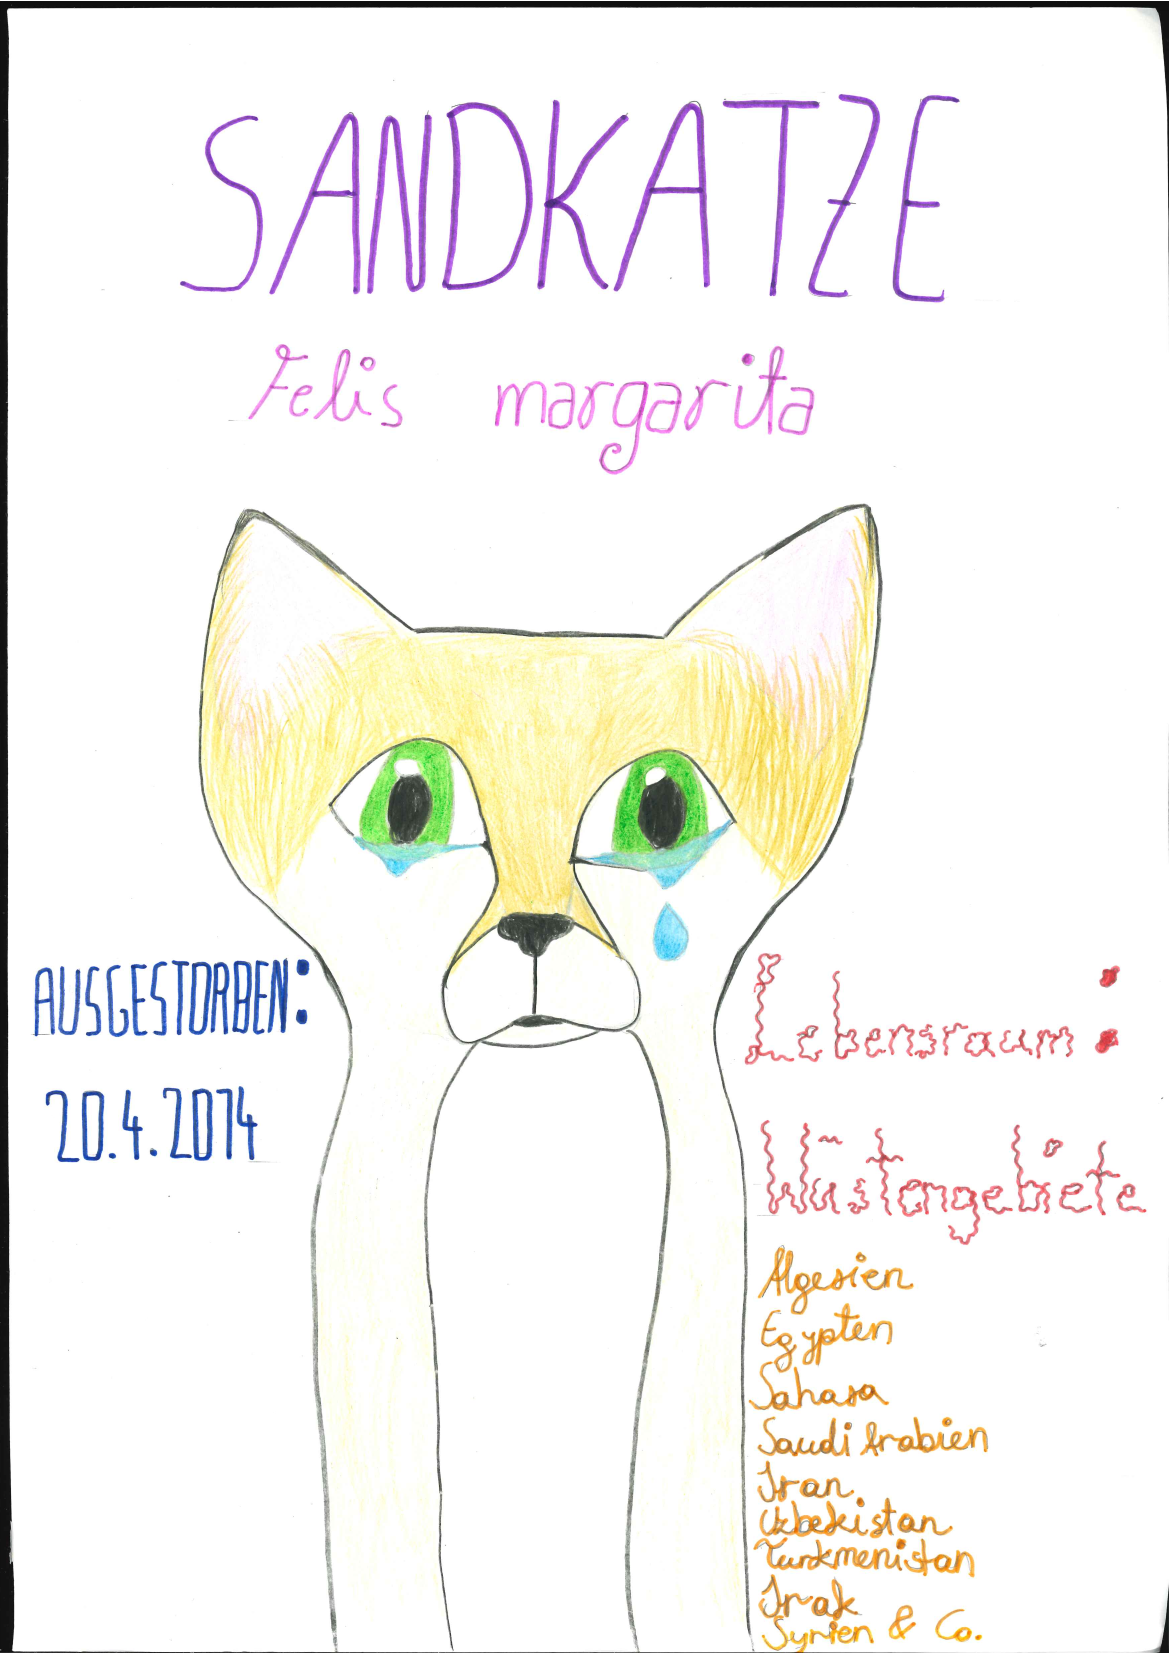 SANDKATZE
Felis margarita
AUSGESTORBEN:
20.4.2014
Lebensraum:
Wüstengebiete
Algerien
Egypten
Sahara
Saudi Arabien
Iran
Uzbekistan
Turkmenistan
Irak
Syrien & Co.